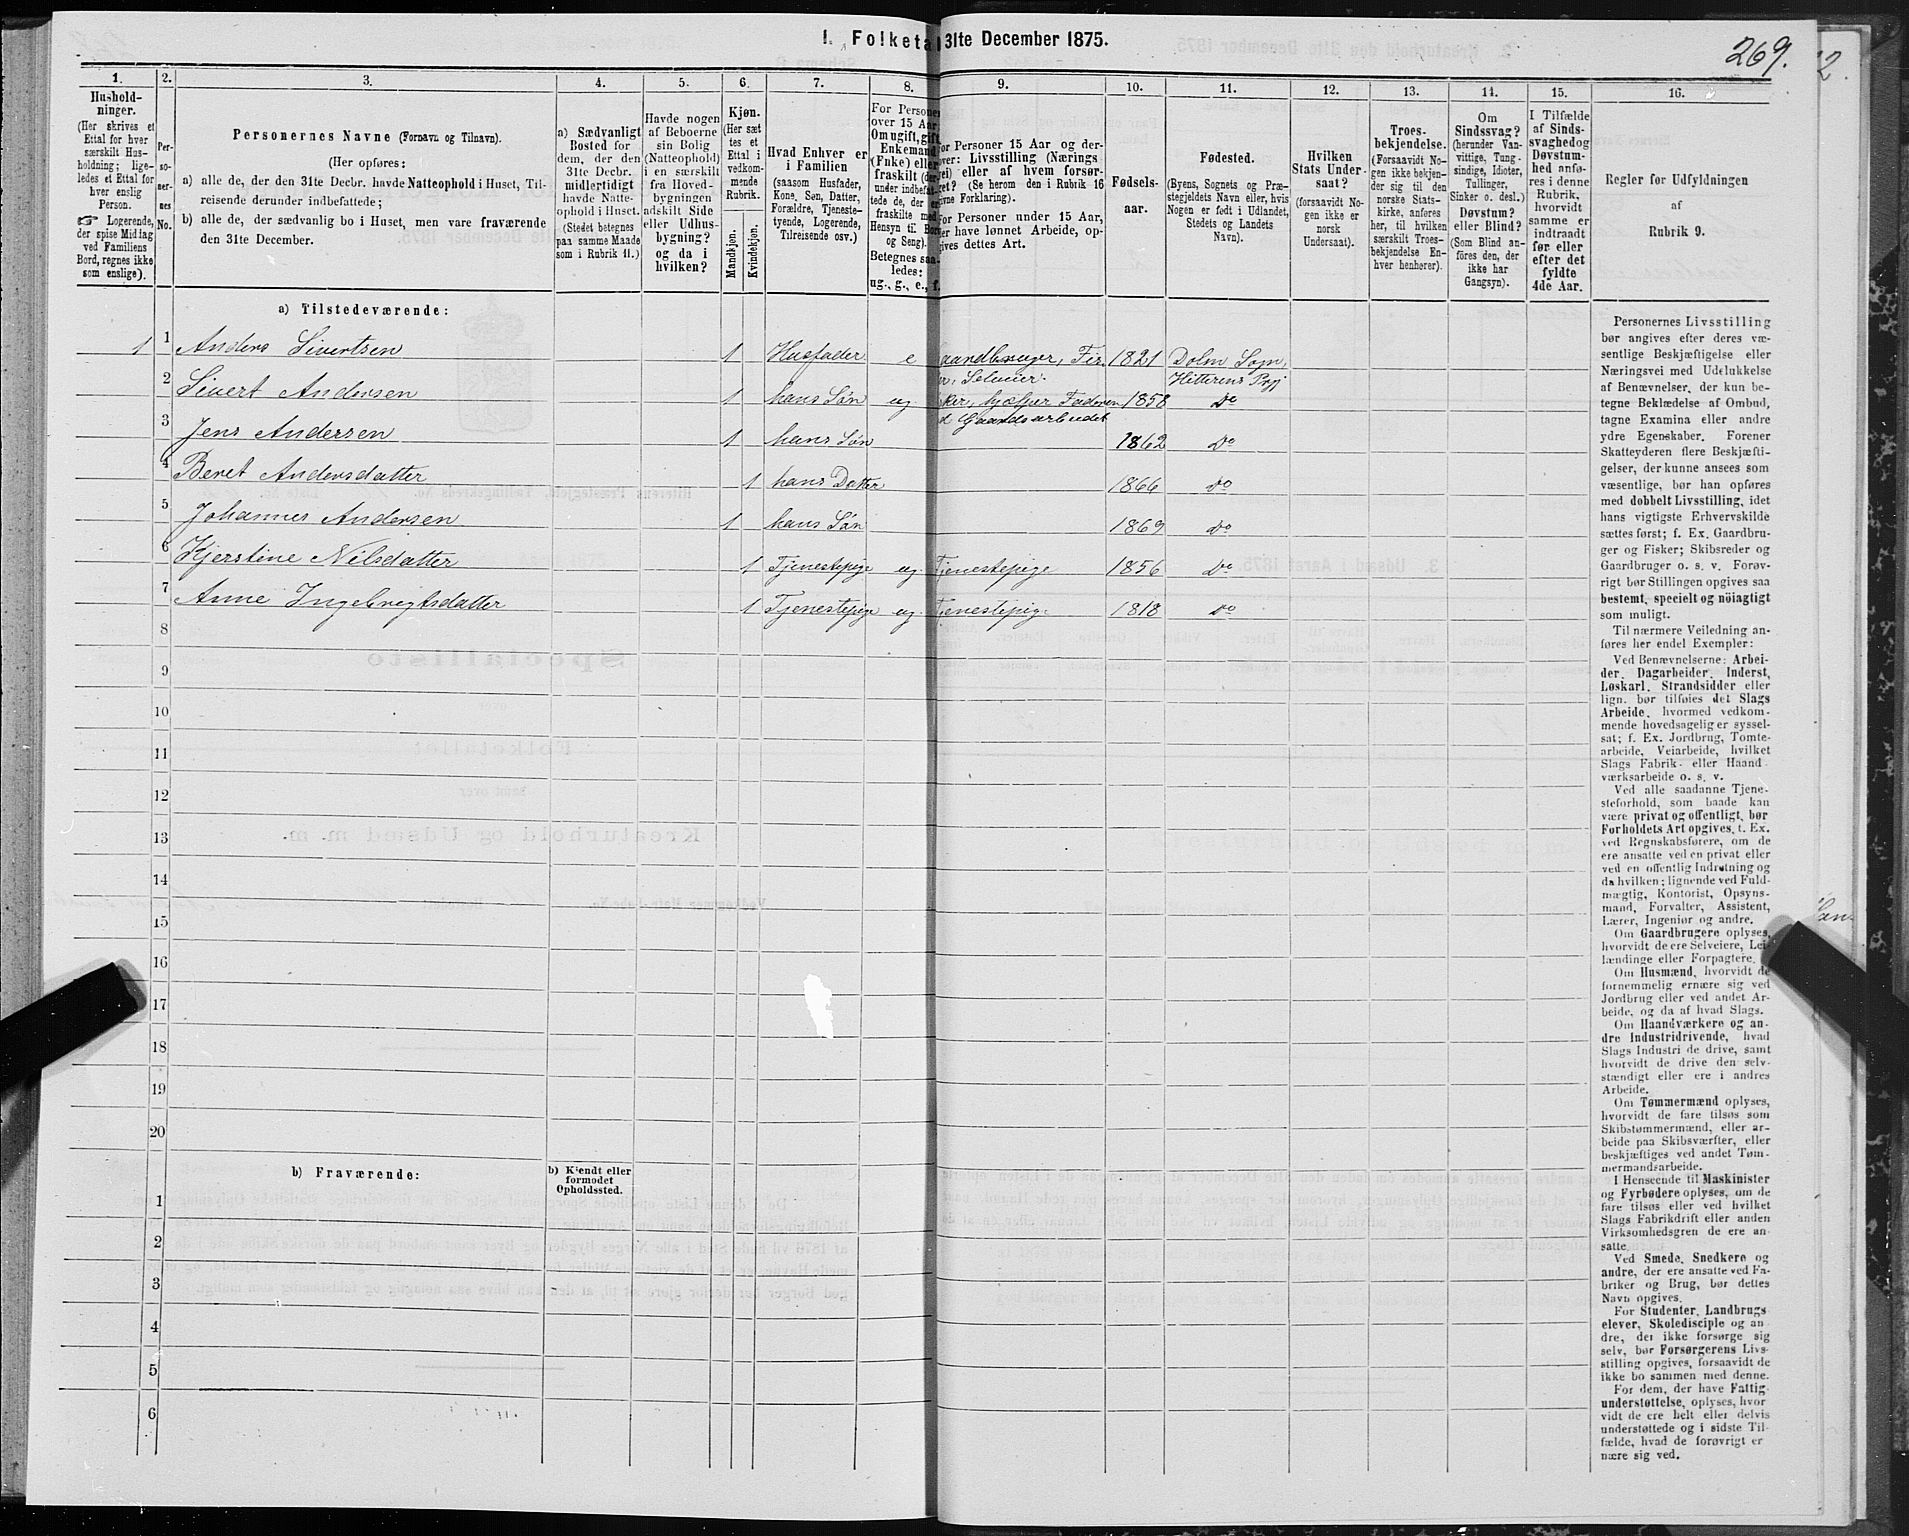 1. Folketa 31te December 1875.
269.
2.
1. 2. 3. 4. 5. 6. 7. 8. 9. 10. 11. 12. 13. 14. 15. 16.
Hushold-
ninger.
(Her skrives et
Ettal for hver
særskilt Hus-
holdning; lige-
ledes et Ettal for
hver enslig
Person.
☞ Logerende,
der spise Middag
ved Familiens
Bord, regnes ikke
som enslige).
Per-
so-
ner-
nes
No.
Personernes Navne (Fornavn og Tilnavn).
(Her opføres:
a) alle de, der den 31te Decbr. havde Natteophold i Huset, Til-
reisende derunder indbefattede;
b) alle de, der sædvanlig bo i Huset, men vare fraværende
den 31te December.
a) Sædvanligt
Bosted for
dem, der den
31te Decbr.
midlertidigt
havde Natte-
ophold i Huset.
(Stedet betegnes
paa samme Maade
som i Rubrik 11.)
Havde nogen
af Beboerne
sin Bolig
(Natteophold)
i en særskilt
fra Hoved-
bygningen
adskilt Side
eller Udhus-
bygning?
og da i
hvilken?
Kjøn.
(Her sæt
tes et
Ettal i
vedkom-
mende
Rubrik.
Mandkjøn.
Kvindekjøn.
Hvad Enhver er
i Familien
(saasom Husfader,
Kone, Søn, Datter,
Forældre, Tjeneste-
tyende, Logerende,
Tilreisende osv.)
For Persone
over 15 Aar
Om ugift, gift
Enkemand
(Enke) eller
fraskilt (der
under indbefat-
tede de, der e
fraskilte med
Hensyn til Bord
og Seng).
Betegnes saa-
ledes:
ug., g., e., f.
or Personer 15 Aar og der-
over: Livsstilling (Nærings
vei) eller af hvem forsør-
get? (Se herom den i Rubrik 16
givne Forklaring).
For Personer under 15 Aar,
der have lønnet Arbeide, op-
gives dettes Art.
Fødsels-
aar.
Fødested.
(Byens, Sognets og Præ-
stegjeldets Navn eller, hvis
Nogen er født i Udlandet,
Stedets og Landets
Navn).
Hvilken
Stats Under-
saat?
(forsaavidt No-
gen ikke er
norsk
Undersaat).
Troes-
bekjendelse.
(Forsaavidt No-
gen ikke bekjen-
der sig til den
norske Stats-
kirke, anføres
her, til hvilken
særskilt Troes-
bekjendelse En-
hver henhører).
Om
Sindssvag?
(herunder Van-
vittige, Tung-
sindige, Idioter,
Tullinger,
Sinker o. desl.)
Døvstum?
eller Blind?
(Som Blind an-
føres den, der
ikke har
Gangsyn).
I Tilfælde
af Sinds-
svaghed og
Døvstum-
hed anfø-
res i denne
Rubrik,
hvorvidt
samme er
indtraadt
før eller
efter det
fyldte
4de Aar.
Regler for Udfyldningen
af
Rubrik 9.
a) Tilstedeværende:
1 1 Anders Sivertsen 1 Husfader e aardbruger, Fis. 1821 Dolm Sogn,
Selveier. Hitterens Pgj
2 Sivert Andersen 1 hans Søn ug ker, hjælper Faderen 1858 Do
d Gaardsarbeidet
3 Jens Andersen 1 hans Søn 1862 Do
4 Beret Andersdatter 1 hans Datter 1866 Do
5 Johannes Andersen 1 hans Søn 1869 Do
6 Kjerstine Nilsdatter 1 Tjenestepige ug. Tjenestepige 1856 Do
7 Anne Ingebregtsdatter 1 Tjenestepige ug. Tjenestepige 1818 Do
8
9
10
11
12
13
14
15
16
17
18
19
20
b) Fraværende:
b) Kjendt eller
formodet
Opholdssted.
1
2
3
4
5
6
Personernes Livsstilling
bør angives efter deres væ-
sentlige Beskjæftigelse eller
Næringsvei med Udelukkelse
af Benævnelser, der kun be-
tegne Beklædelse af Ombud,
tagne Examina eller andre
ydre Egenskaber. Forener
Skatteyderen flere Beskjæfti-
gelser, der kunne ansees som
væsentlige, bør han opføres
med dobbelt Livsstilling, idet
hans vigtigste Erhvervskilde
sættes først; f. Ex. Gaardbru-
ger og Fisker; Skibsreder og
Gaardbruger o. s. v. Forøv-
rigt bør Stillingen opgives saa
bestemt, specielt og nöiagtigt
som muligt.
Til nærmere Veiledning an-
føres her endel Exempler:
Ved Benævnelserne: Arbei-
der, Dagarbeider, Inderst,
Løskarl, Strandsidder eller
lign. bør tilføies det Slags
Arbeide, hvormed vedkom-
mende hovedsagelig er syssel-
sat; f. Ex. Jordbrug, Tomte-
arbeide, Veiarbeide, hvilket
Slags Fabrik- eller Haand-
værksarbeide o. s. v.
Ved alle saadanne Tjene-
steforhold, som baade kan
være privat og offentligt, bør
Forholdets Art opgives, t. Ex.
ved Regnskabsførere, om de
ere ansatte ved en privat eller
ved en offentlig Indretning og
da hvilken; lignende ved Fuld-
mægtig, Kontorist, Opsyns-
mand, Forvalter, Assistent,
Lærer, Ingeniør og andre.
Om Gaardbrugere oplyses,
hvorvidt de ere Selveiere, Lei-
lændinge eller Forpagtere.
Om Husmænd, hvorvidt de
fornemmelig ernære sig ved
Jordbrug eller ved andet Ar-
beide, og da af hvad Slags.
Om Haandværkere og an-
dre Industridrivende, hvad
Slags Industri de drive, samt
hvorvidt de drive den selv-
stændigt eller ere i andres
Arbeide.
Om Tømmermænd oplyses,
hvorvidt de fare tilsøs som
Skibstømmermænd, eller ar-
beide paa Skibsværfter, eller
beskjæftiges ved andet Tøm-
mermandsarbeide.
I Henseende til Maskinister
og Fyrbødere oplyses, om de
fare tilsøs eller ved hvilket
Slags Fabrikdrift eller anden
Virksomhedsgren de ere an-
satte.
Ved Smede, Snedkere og
andre, der ere ansatte ved Fa-
briker og Brug, bør dettes
Navn opgives.
For Studenter, Landbrugs
elever, Skoledisciple og an
dre, der ikke forsørge sig
selv, bør Forsørgerens Livs-
stilling opgives, forsaavidt de
ikke bo sammen med denne.
For dem, der have Fattig-
understøttelse, oplyses, hvor
vidt de ere helt eller delvis
understøttede og i sidste Til-
fælde, hvad de forøvrigt er
nære sig ved.